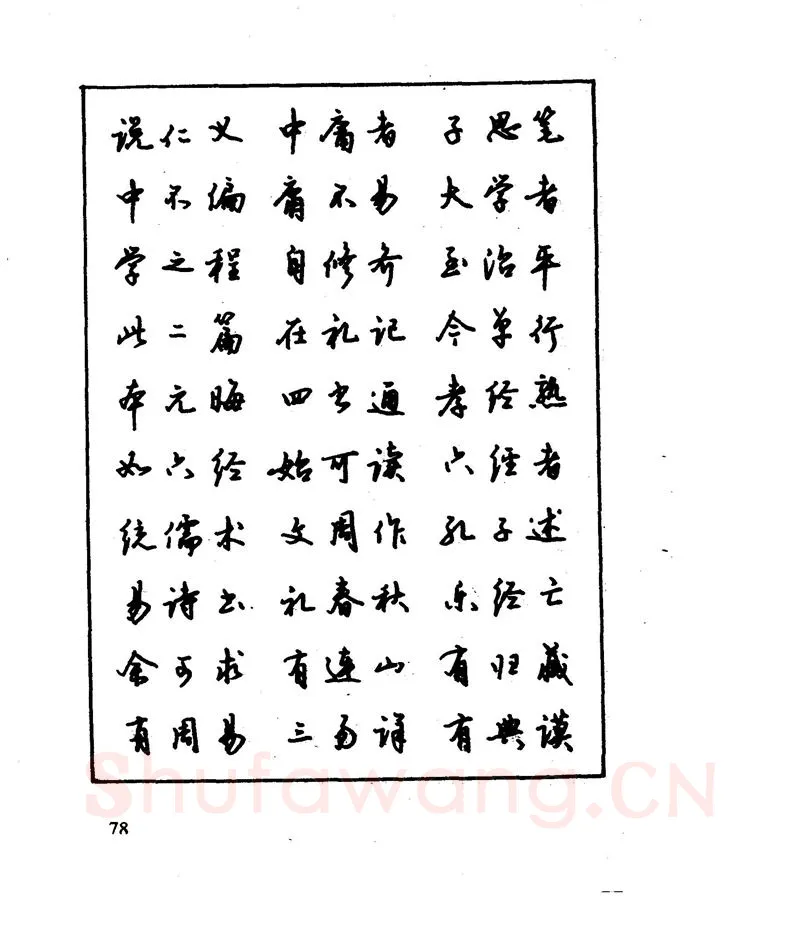 说仁义 中庸者 子思笔
中不偏 庸不易 大学者
学之程 自修齐 至治平
此二篇 在礼记 今单行
本元晦 四书通 孝经熟
如六经 始可读 六经者
统儒术 文周作 孔子述
易诗书 礼春秋 乐经亡
余可求 有连山 有归藏
有周易 三易详 有典谟
Shufawang.CN
78